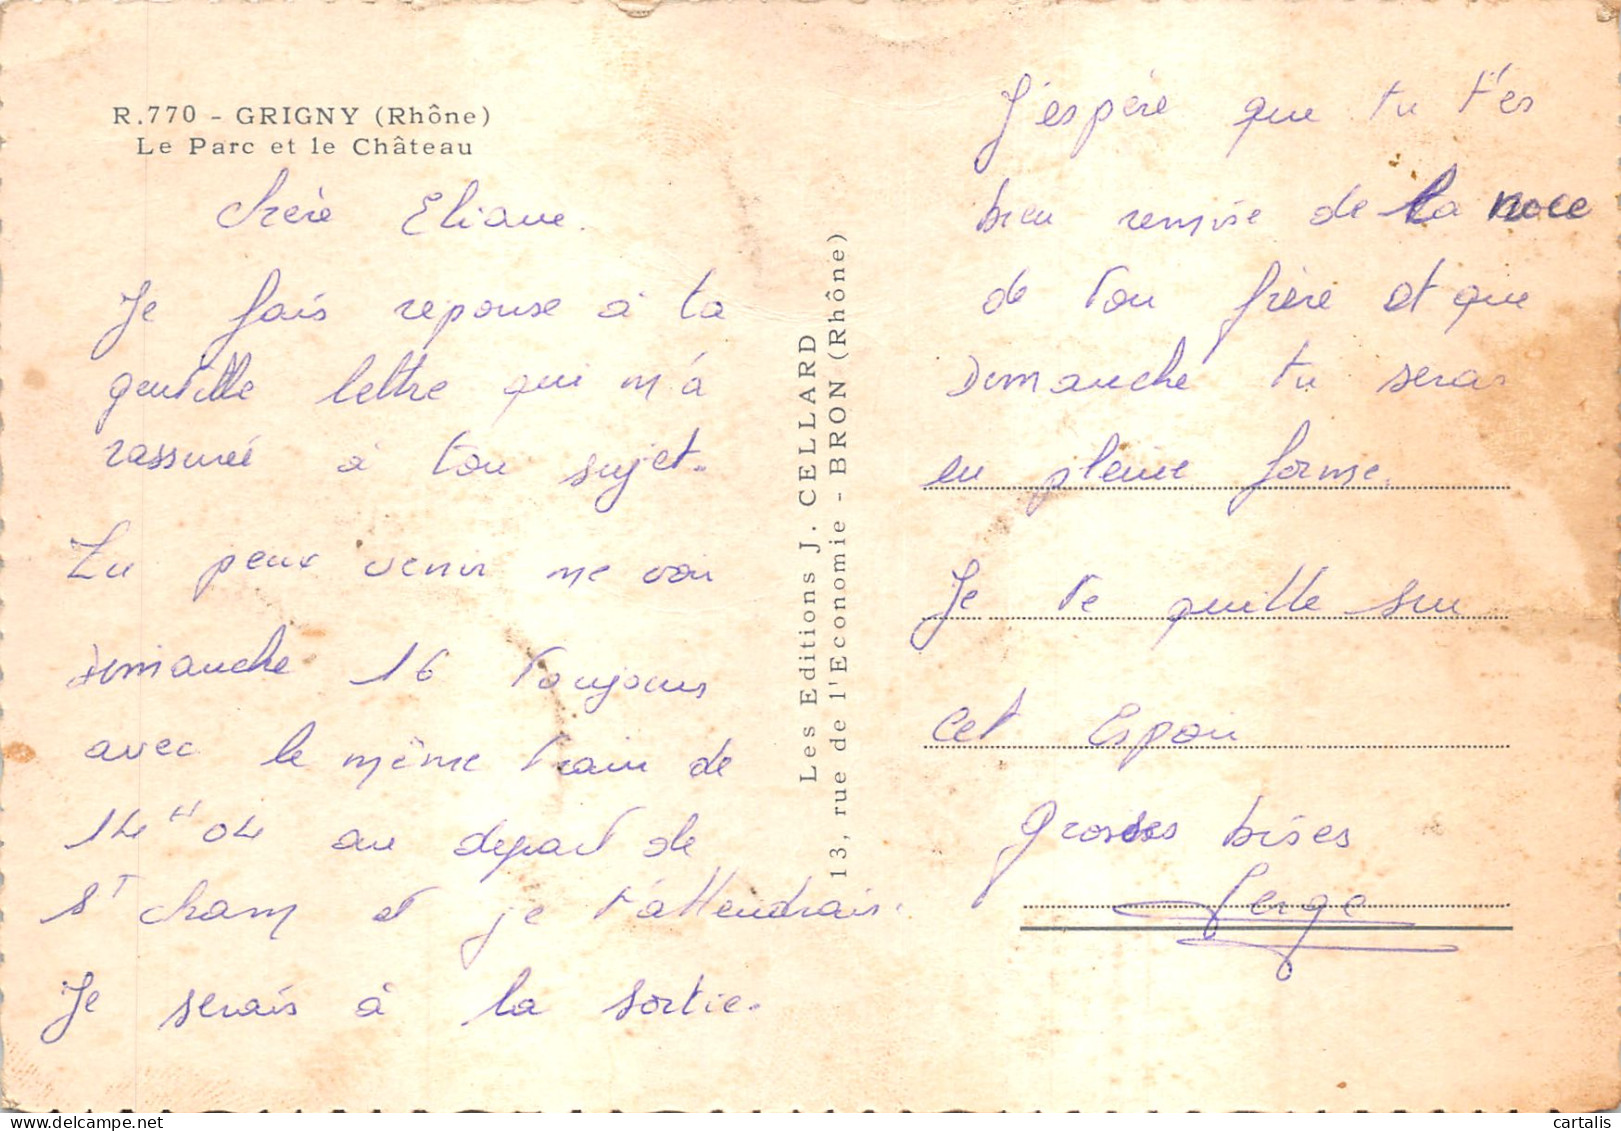 R.770 - GRIGNY (Rhône)
Le Parc et le Château
Chère Eliane.
Je fais réponse à ta
gentille lettre qui m'a
rassuré à ton sujet.
Tu peux venir me voir
Dimanche 16 toujours
avec le même train de
14H04 au départ de
ST Cham et je t'attendrais.
Je serais à la sortie.
Les Editions J. CELLARD
13, rue de l'Economie - BRON (Rhône)
J'espère que tu t'es
bien remise de la noce
de ton frère et que
Dimanche tu seras
en pleine forme.
Je te quitte sur
cet Espoir
Grosses bises
Serge
cartalis